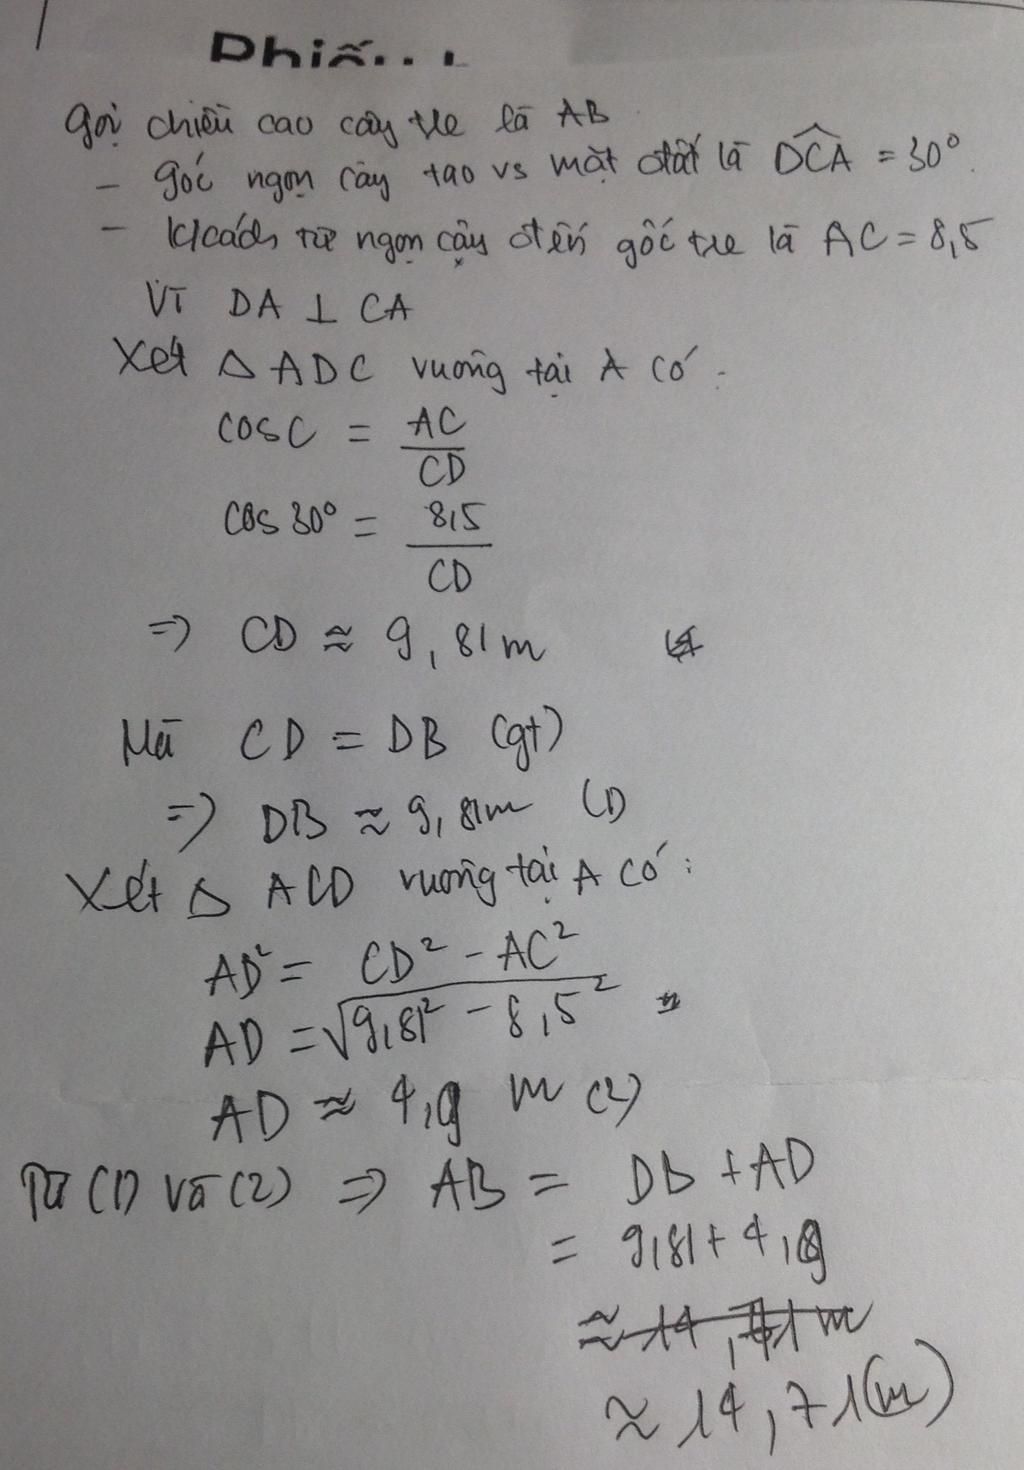 Gọi chiều cao cây tre là AB
- góc ngọn cây tạo vs mặt đất là DCA = 30°.
- k/cách từ ngọn cây đến gốc tre là AC = 8,5
Vì DA ⊥ CA
Xét Δ ADC vuông tại A có
cosC = AC/CD
cos 30° = 8,5/CD
=> CD ≈ 9,81m
Mà CD = DB (gt)
=> DB ≈ 9,81m (1)
Xét Δ ACD vuông tại A có:
AD² = CD² - AC²
AD = √9,81² - 8,5²
AD ≈ 4,9 m (2)
Từ (1) và (2) => AB = DB + AD
= 9,81 + 4,9
≈ 14,71(m)